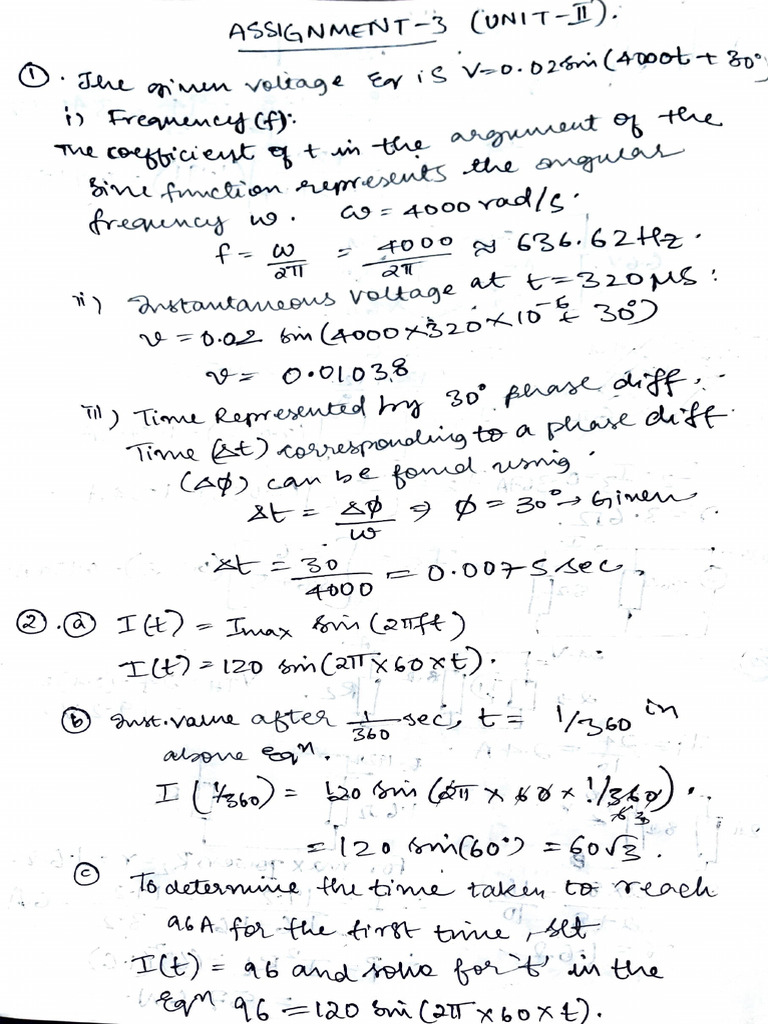 ASSIGNMENT-3 (UNIT-II).
① . The given voltage Eqn is V=0.02sin(4000t + 30°)
i) Frequency (f):
The coefficient of t in the argument of the
Sine function represents the angular
frequency ω. ω = 4000 rad/s.
f = ω/2π = 4000/2π ≈ 636.62Hz.
ii) Instantaneous voltage at t = 320μs :
v = 0.02 sin(4000×320×10⁻⁶ + 30°)
v = 0.01038
iii) Time Represented by 30° phase diff.
Time (Δt) corresponding to a phase diff
(Δφ) can be found using.
Δt = Δφ/ω ⇒ φ = 30° → Given
Δt = 30/4000 = 0.0075 sec.
② . ⓐ I(t) = Imax sin(2πft)
I(t) = 120 sin(2π×60×t).
ⓑ Inst. value after 1/360 sec, t = 1/360 in
above Eqⁿ.
I (1/360) = 120 sin (2π × 60 × 1/360) .
= 120 sin(60°) = 60√3 .
ⓒ To determine the time taken to reach
96A for the first time, set
I(t) = 96 and solve for 't' in the
Eqⁿ 96 = 120 sin(2π×60×t).